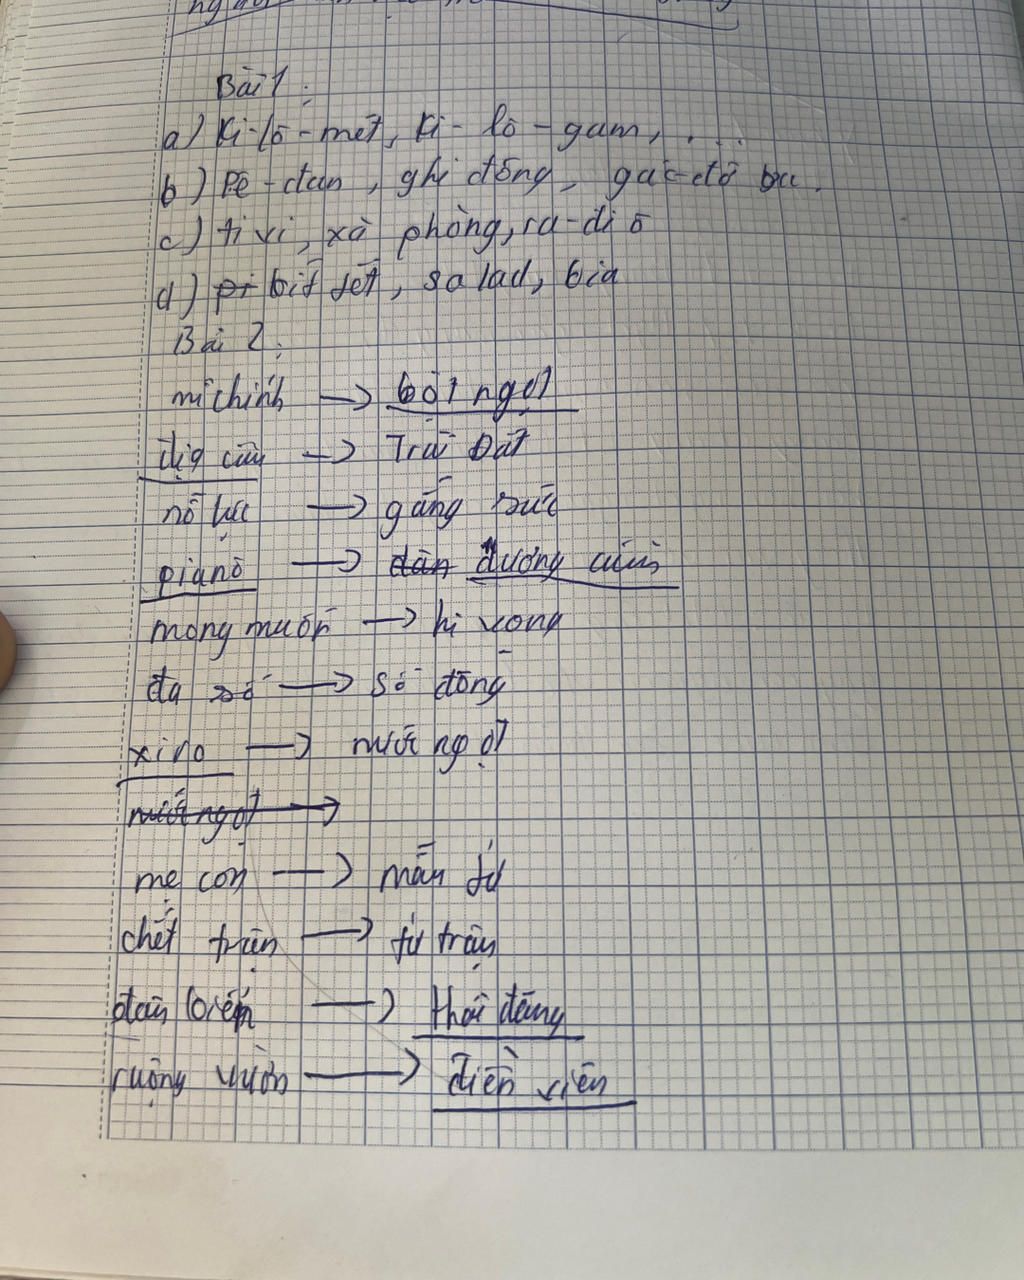 Bài 1:
a) Ki-lô-mét, Ki-lô-gam, ...
b) Pê-đan, ghi đông, gác-đờ bu.
c) ti vi, xà phòng, ra-di ô
d) bít tết, sa lad, bia
Bài 2:
mì chính → bột ngọt
địa cầu → Trái Đất
nỗ lực → gắng sức
pianô → đàn dương cầm
mong muốn → hi vọng
đa số → số đông
xiro → nước ngọt
nước ngọt →
mẹ con → mẫu tử
chết trận → tử trận
→
ruộng vườn → điền viên